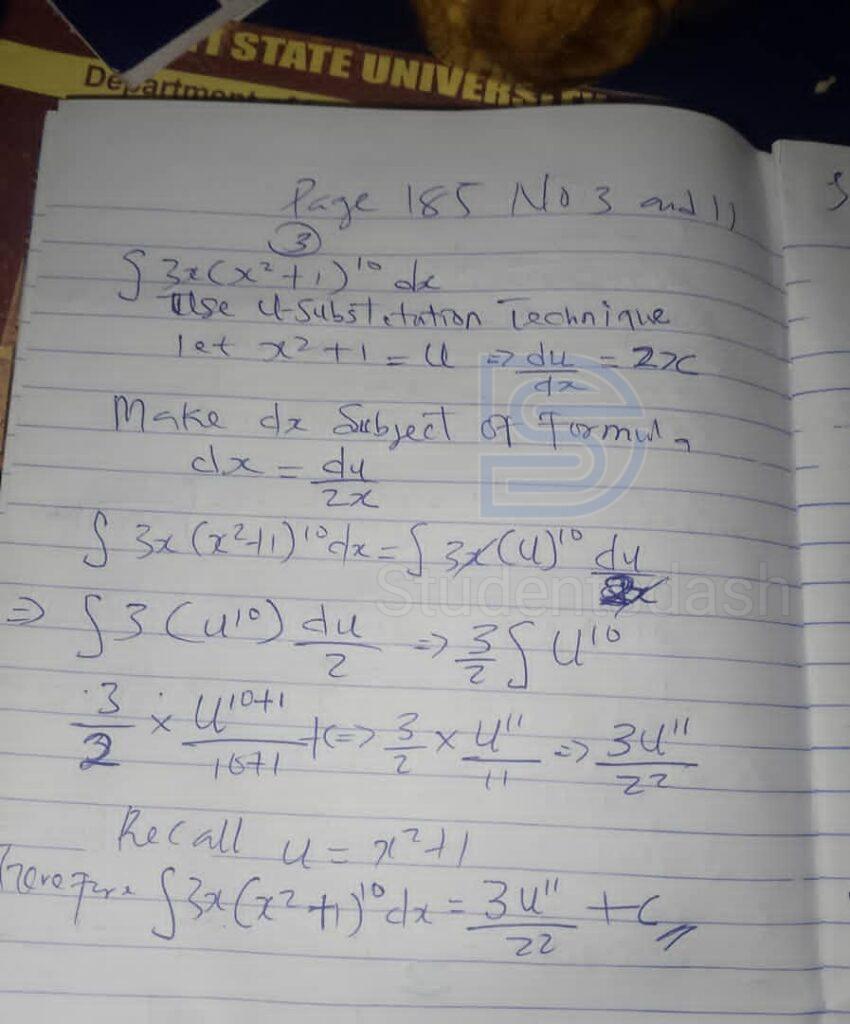 STATE UNIVERS
Department
Page 185 No 3 and 11
③
∫ 3x(x²+1)¹⁰ dx
Use U-Substetation Technique
let x²+1 = U ⇒ du/dx = 2x
Make dx Subject of Formul
dx = du/2x
∫ 3x(x²+1)¹⁰ dx = ∫ 3x(U)¹⁰ du/2x
Students dash
⇒ ∫ 3(U¹⁰) du/2 ⇒ 3/2 ∫ U¹⁰
3/2 × U¹⁰⁺¹/10+1 +c ⇒ 3/2 × U¹¹/11 ⇒ 3U¹¹/22
Recall U = x²+1
Therefore ∫ 3x(x²+1)¹⁰ dx = 3U¹¹/22 + c